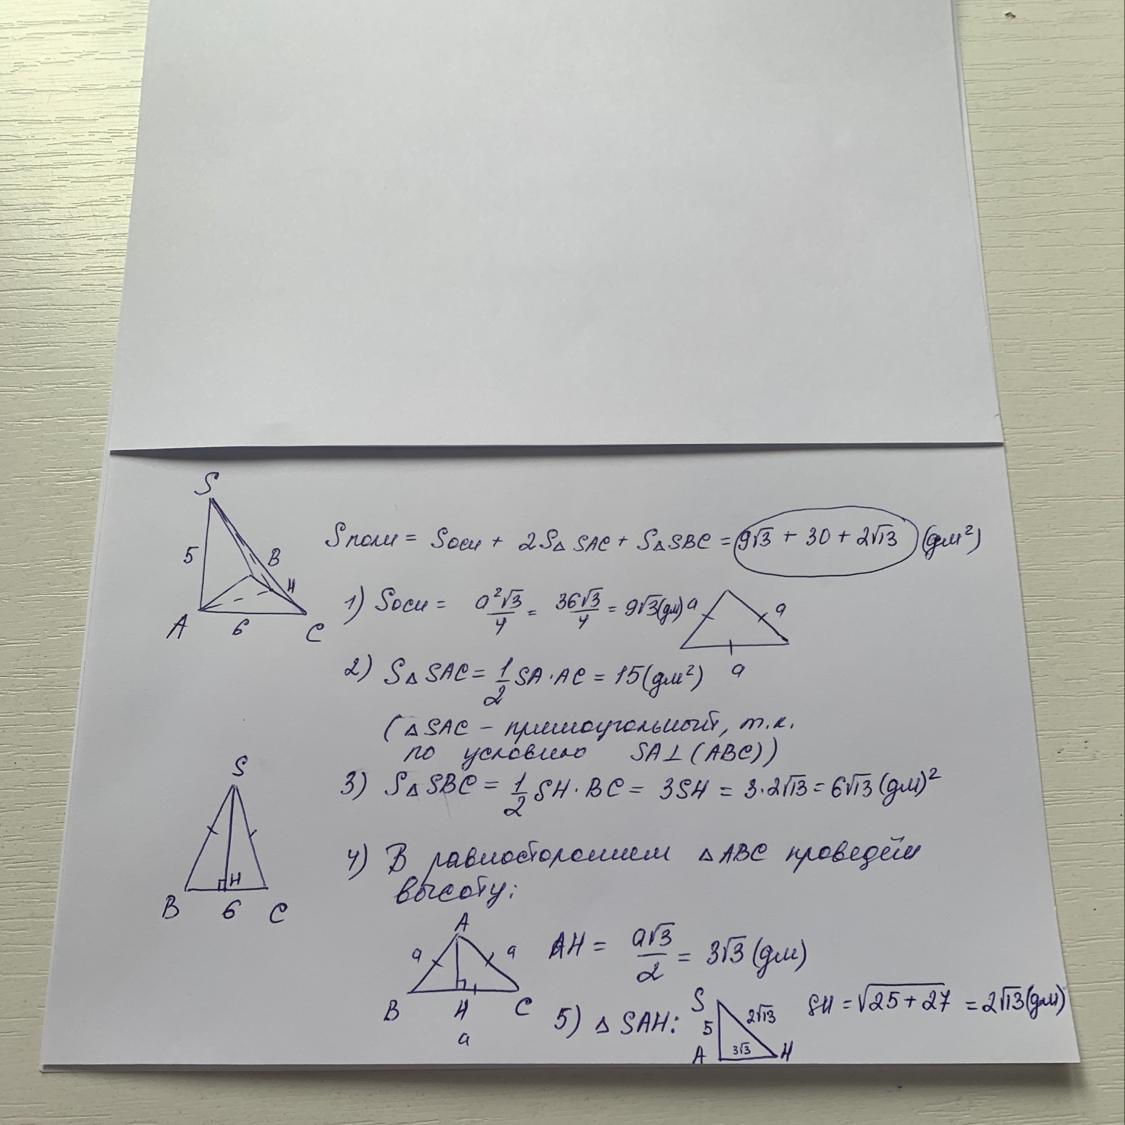 S
5
B
H
A
6
C
Sполн = Sосн + 2S△ SAC + S△SBC = 9√3 + 30 + 2√13 (дм²)
1) Sосн = a²√3/4 = 36√3/4 = 9√3(дм)
a
a
a
2) S△ SAC = 1/2 SA · AC = 15(дм²)
(△SAC – прямоугольный, т.к.
по условию SA⊥(ABC))
3) S△ SBC = 1/2 SH · BC = 3SH = 3·2√13 = 6√13 (дм)²
S
H
B
6
C
4) В равностороннем △ABC проведём
высоту:
A
a
a
B
H
C
a
AH = a√3/2 = 3√3 (дм)
5) △ SAH:
S
5
2√13
A
3√3
H
SH = √25+27 = 2√13(дм)